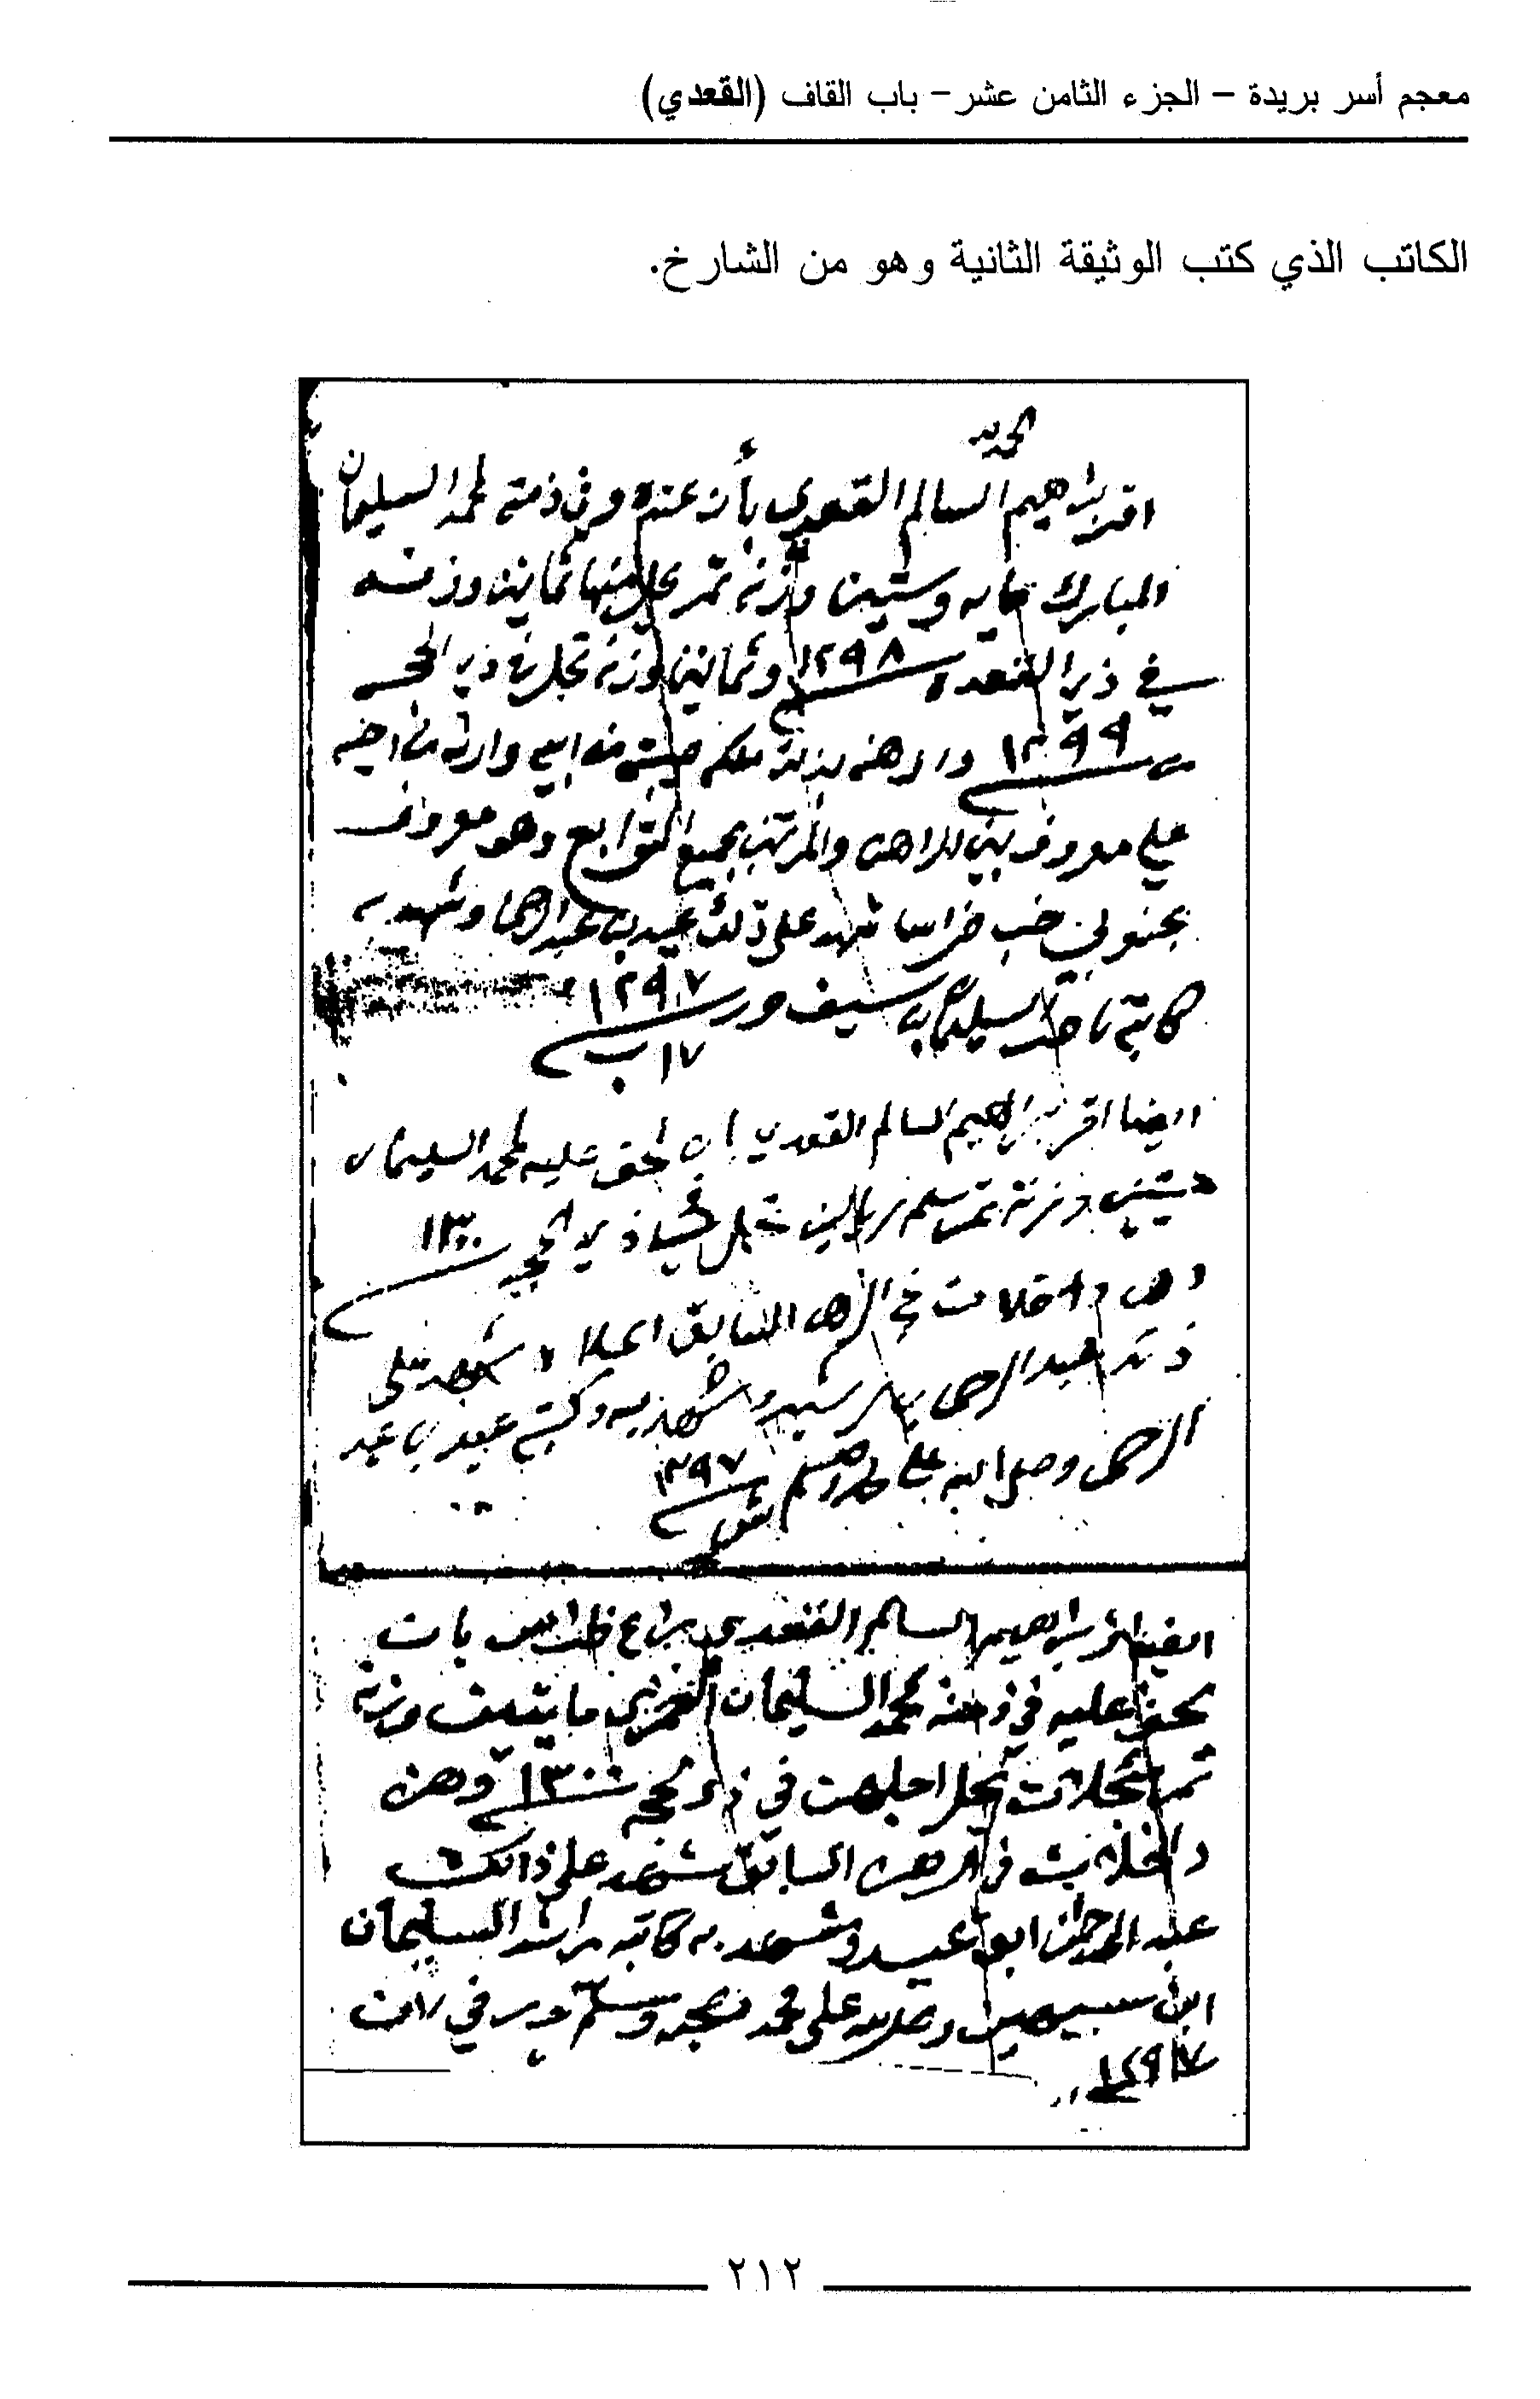 معجم أسر بريدة – الجزء الثامن عشر – باب القاف (القعدي)
الكاتب الذي كتب الوثيقة الثانية وهو من الشارخ.
الحمد لله
اقر ابراهيم السالم القعدي بأن عنده وفي ذمته لمحمد السليمان
المبارك مايه وستين وزنة تمر يحل منها ثمانين وزنه
في ذي القعده ١٢٩٨ وثمانين وزنه تحل في ذي الحجه
١٢٩٩ وارهنه بذلك ملكه من ابيه وارثه من اخيه
علي معروف بين الراهن والمرتهن بجميع التوابع وهو معروف
بجنوبي خب شهد على ذلك عبيد بن عبدالرحمن وشهد به
كاتبه ناصر السليمان بن سيف حرر ١٢٩٧
١٧ ب
ايضا اقر ابراهيم السالم القعدي بان لحق عليه لمحمد السليمان
ستين وزنة تمر سلم ريالين تحل في ذي الحجه ١٣٠٠
وهن داخلات في الرهن السابق اعلاه وشهد على
ذلك عبدالرحمن وشهد به وكتبه عبيد بن عبد
الرحمن وصلى الله على محمد وسلم ١٢٩٧
ايضا اقر ابراهيم السالم القعدي بان
لحق عليه في ذمته لمحمد السليمان العمري مايتين وزنة
تمر يحل اجلهن في ذي الحجه ١٣٠٠ وهن
داخلات في الرهن السابق شهد على ذالك
عبد الرحمن ابن عبيد وشهد به كاتبه راشد السليمان
ابن سبيهين وصلى الله على محمد وصحبه وسلم حرر في
١٢٩٧
٢١٢